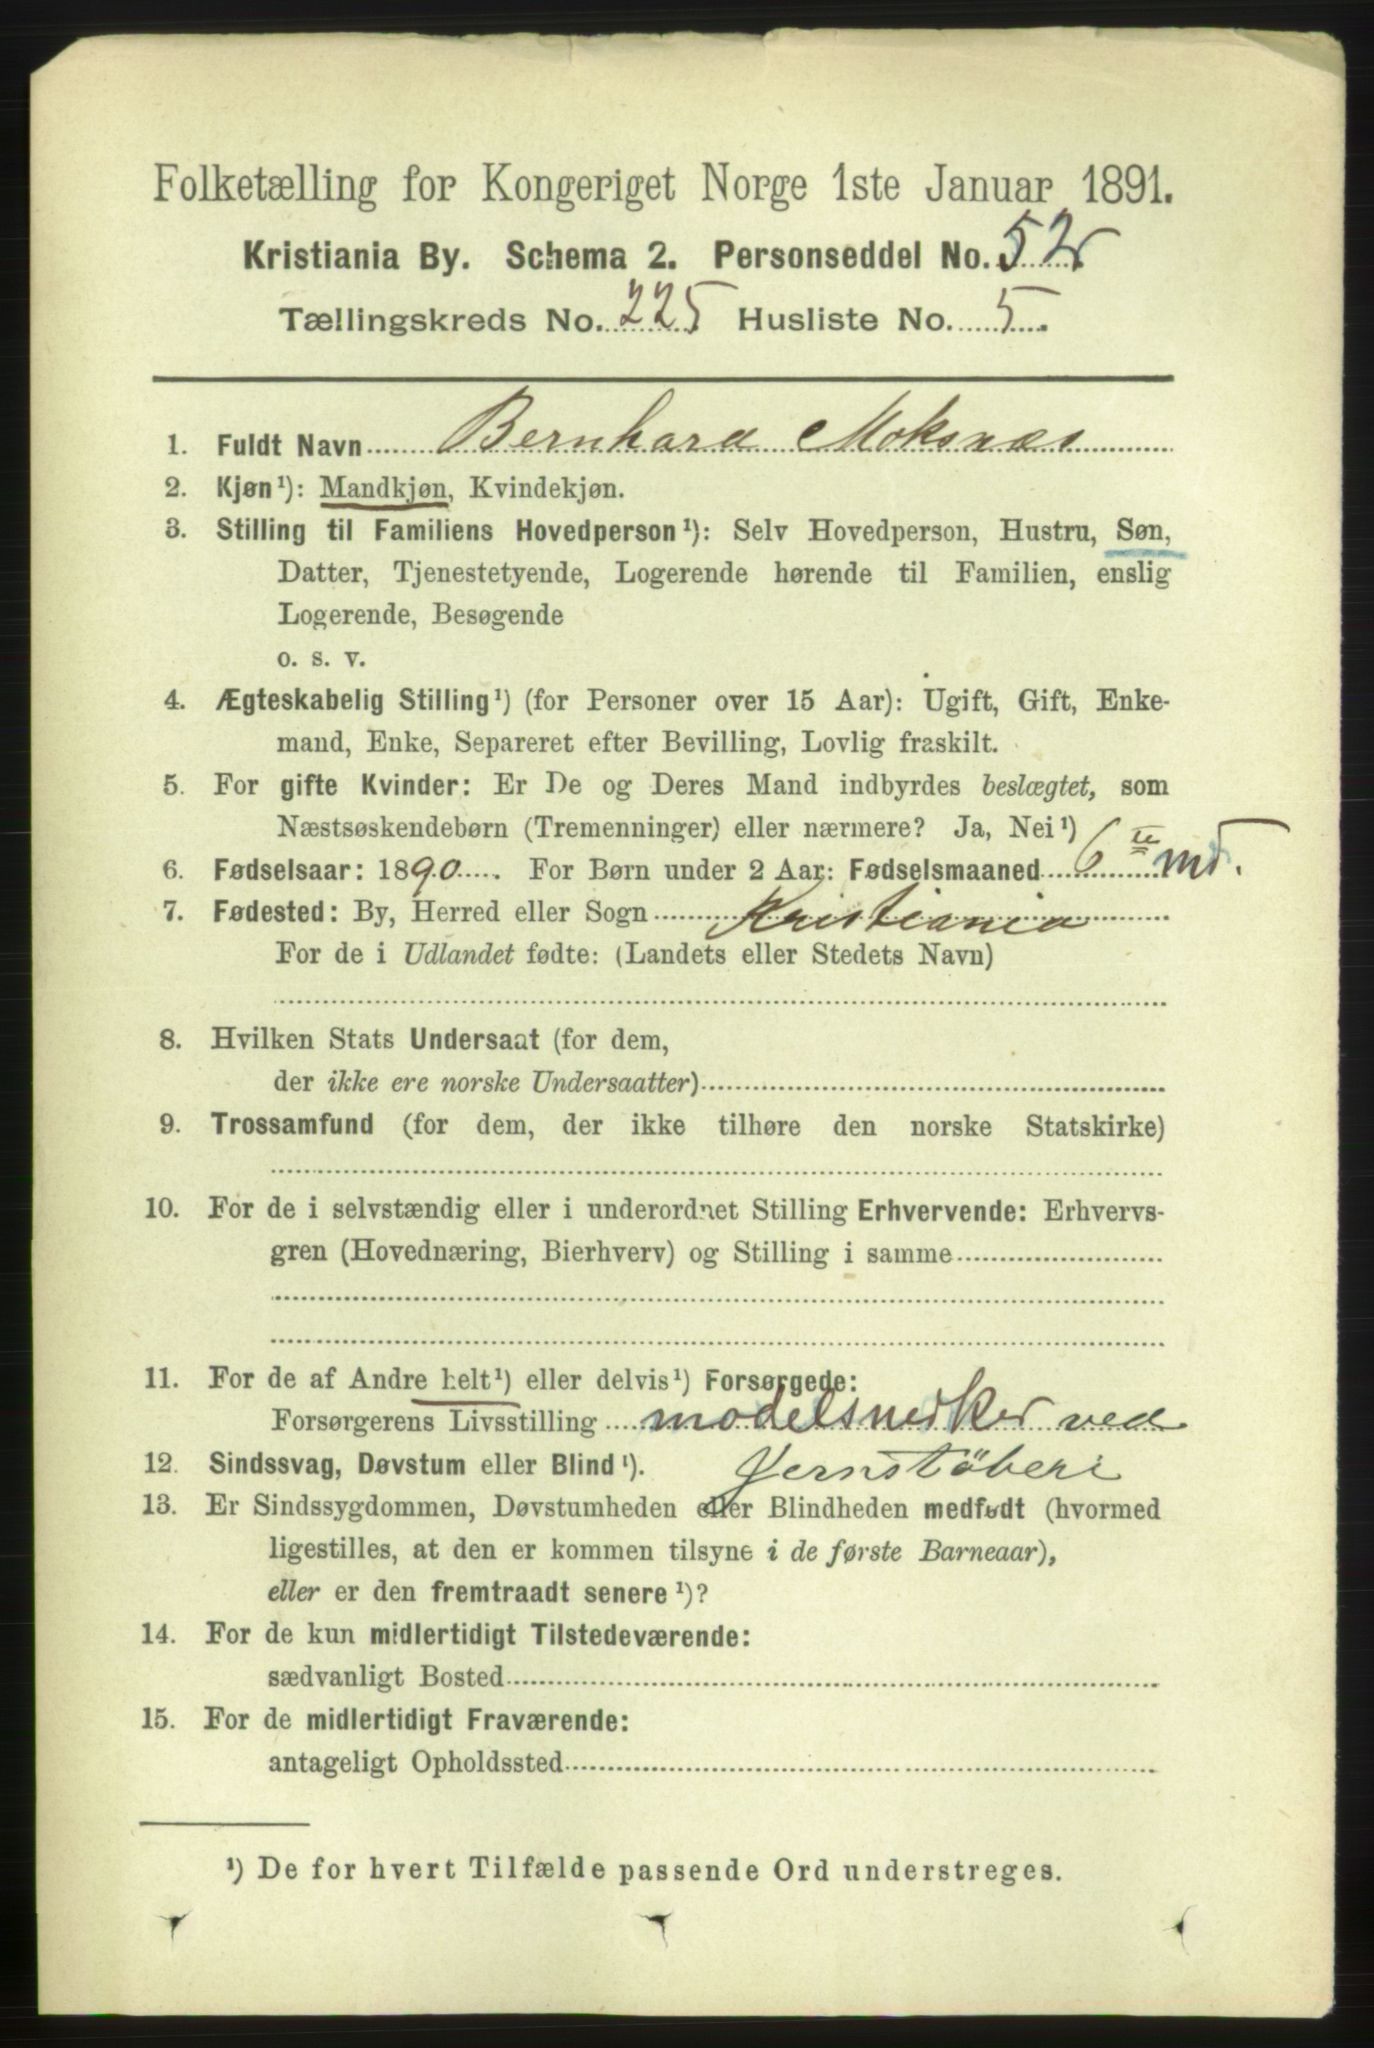 Folketælling for Kongeriget Norge 1ste Januar 1891.
Kristiania By. Schema 2. Personseddel No. 52
Tællingskreds No. 225 Husliste No. 5.
1. Fuldt Navn Bernhard Moksnæs
2. Kjøn¹): Mandkjøn, Kvindekjøn.
3. Stilling til Familiens Hovedperson¹): Selv Hovedperson, Hustru, Søn,
Datter, Tjenestetyende, Logerende hørende til Familien, enslig
Logerende, Besøgende
o. s. v.
4. Ægteskabelig Stilling¹) (for Personer over 15 Aar): Ugift, Gift, Enke-
mand, Enke, Separeret efter Bevilling, Lovlig fraskilt.
5. For gifte Kvinder: Er De og Deres Mand indbyrdes beslægtet, som
Næstsøskendebørn (Tremenninger) eller nærmere? Ja, Nei¹)
6. Fødselsaar: 1890. For Børn under 2 Aar: Fødselsmaaned 6te md.
7. Fødested: By, Herred eller Sogn Kristiania
For de i Udlandet fødte: (Landets eller Stedets Navn)
8. Hvilken Stats Undersaat (for dem,
der ikke ere norske Undersaatter)
9. Trossamfund (for dem, der ikke tilhøre den norske Statskirke)
10. For de i selvstændig eller i underordnet Stilling Erhvervende: Erhvervs-
gren (Hovednæring, Bierhverv) og Stilling i samme
11. For de af Andre helt¹) eller delvis¹) Forsørgede:
Forsørgerens Livsstilling modelsnedker ved
12. Sindssvag, Døvstum eller Blind¹). Jernstöberi
13. Er Sindssygdommen, Døvstumheden eller Blindheden medfødt (hvormed
ligestilles, at den er kommen tilsyne i de første Barneaar),
eller er den fremtraadt senere¹)?
14. For de kun midlertidigt Tilstedeværende:
sædvanligt Bosted
15. For de midlertidigt Fraværende:
antageligt Opholdssted
¹) De for hvert Tilfælde passende Ord understreges.